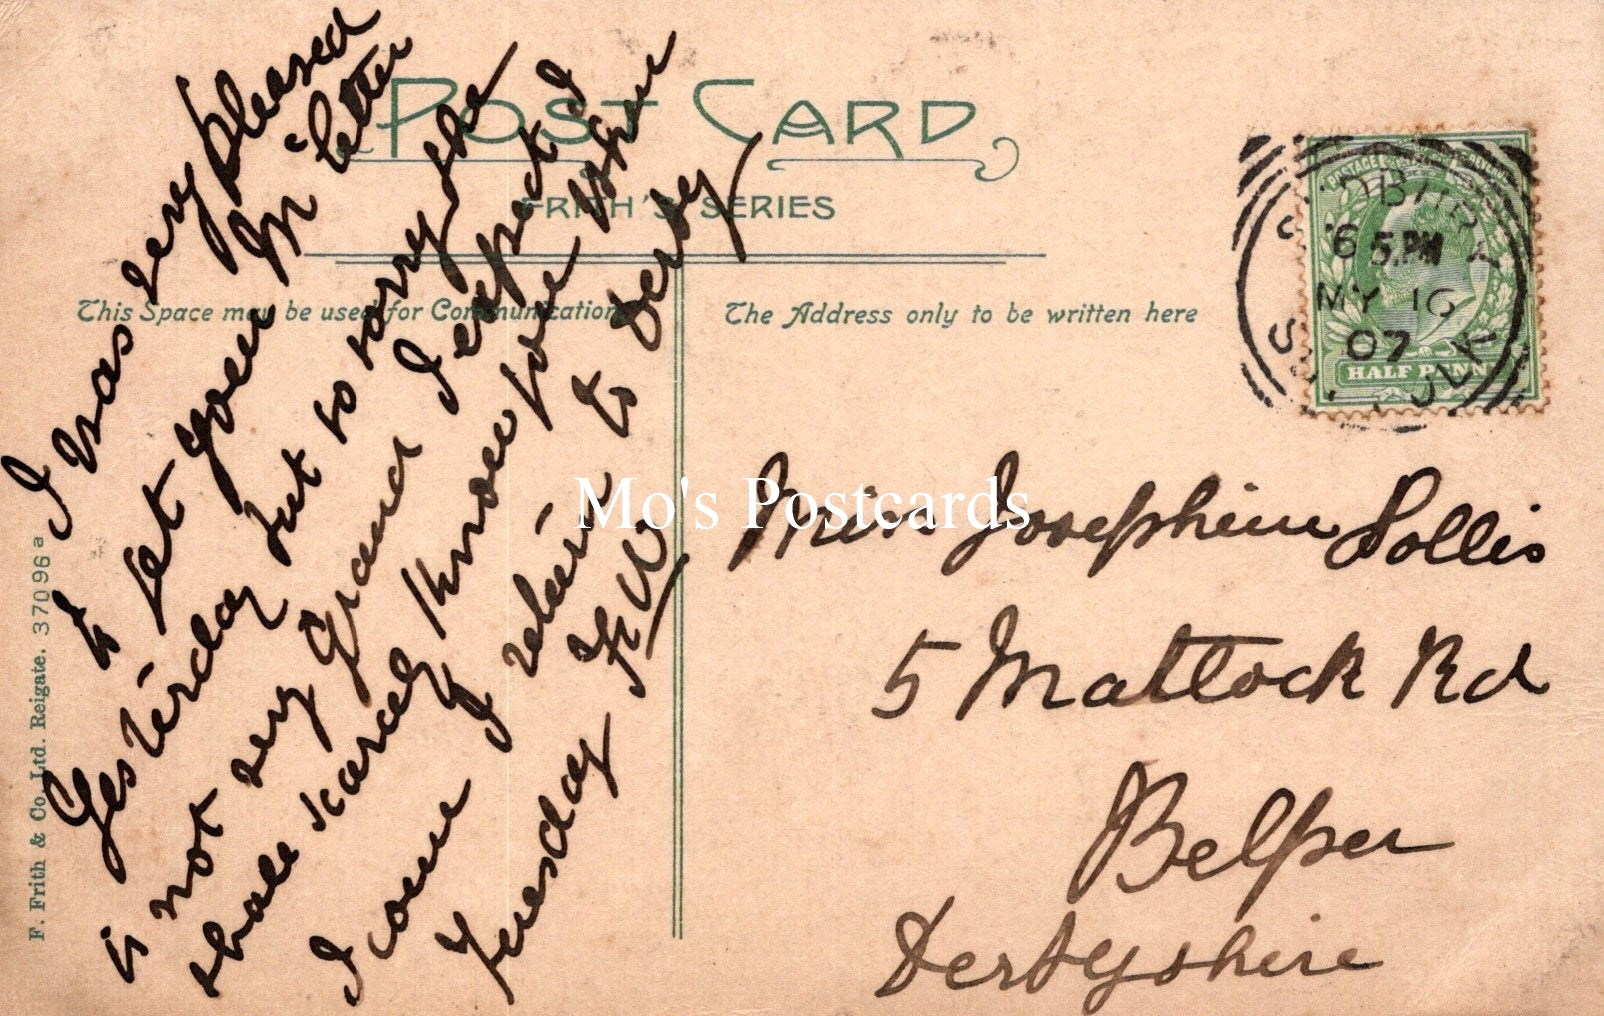 POST CARD
FRITH'S SERIES
This Space may be used for Communication
The Address only to be written here
F. Frith & Co. Ltd. Reigate. 37096a
I was very pleased
to get your M letter
Yesterday but so sorry she
is not very Grand I expect I
shall scarcely know you when
I come I return to Derby
Tuesday
Miss Josephine Sollis
5 Matlock Rd
Belper
Derbyshire
DBURY
6 5.PM
MY 16
07
HALF PENN
Mo's Postcards